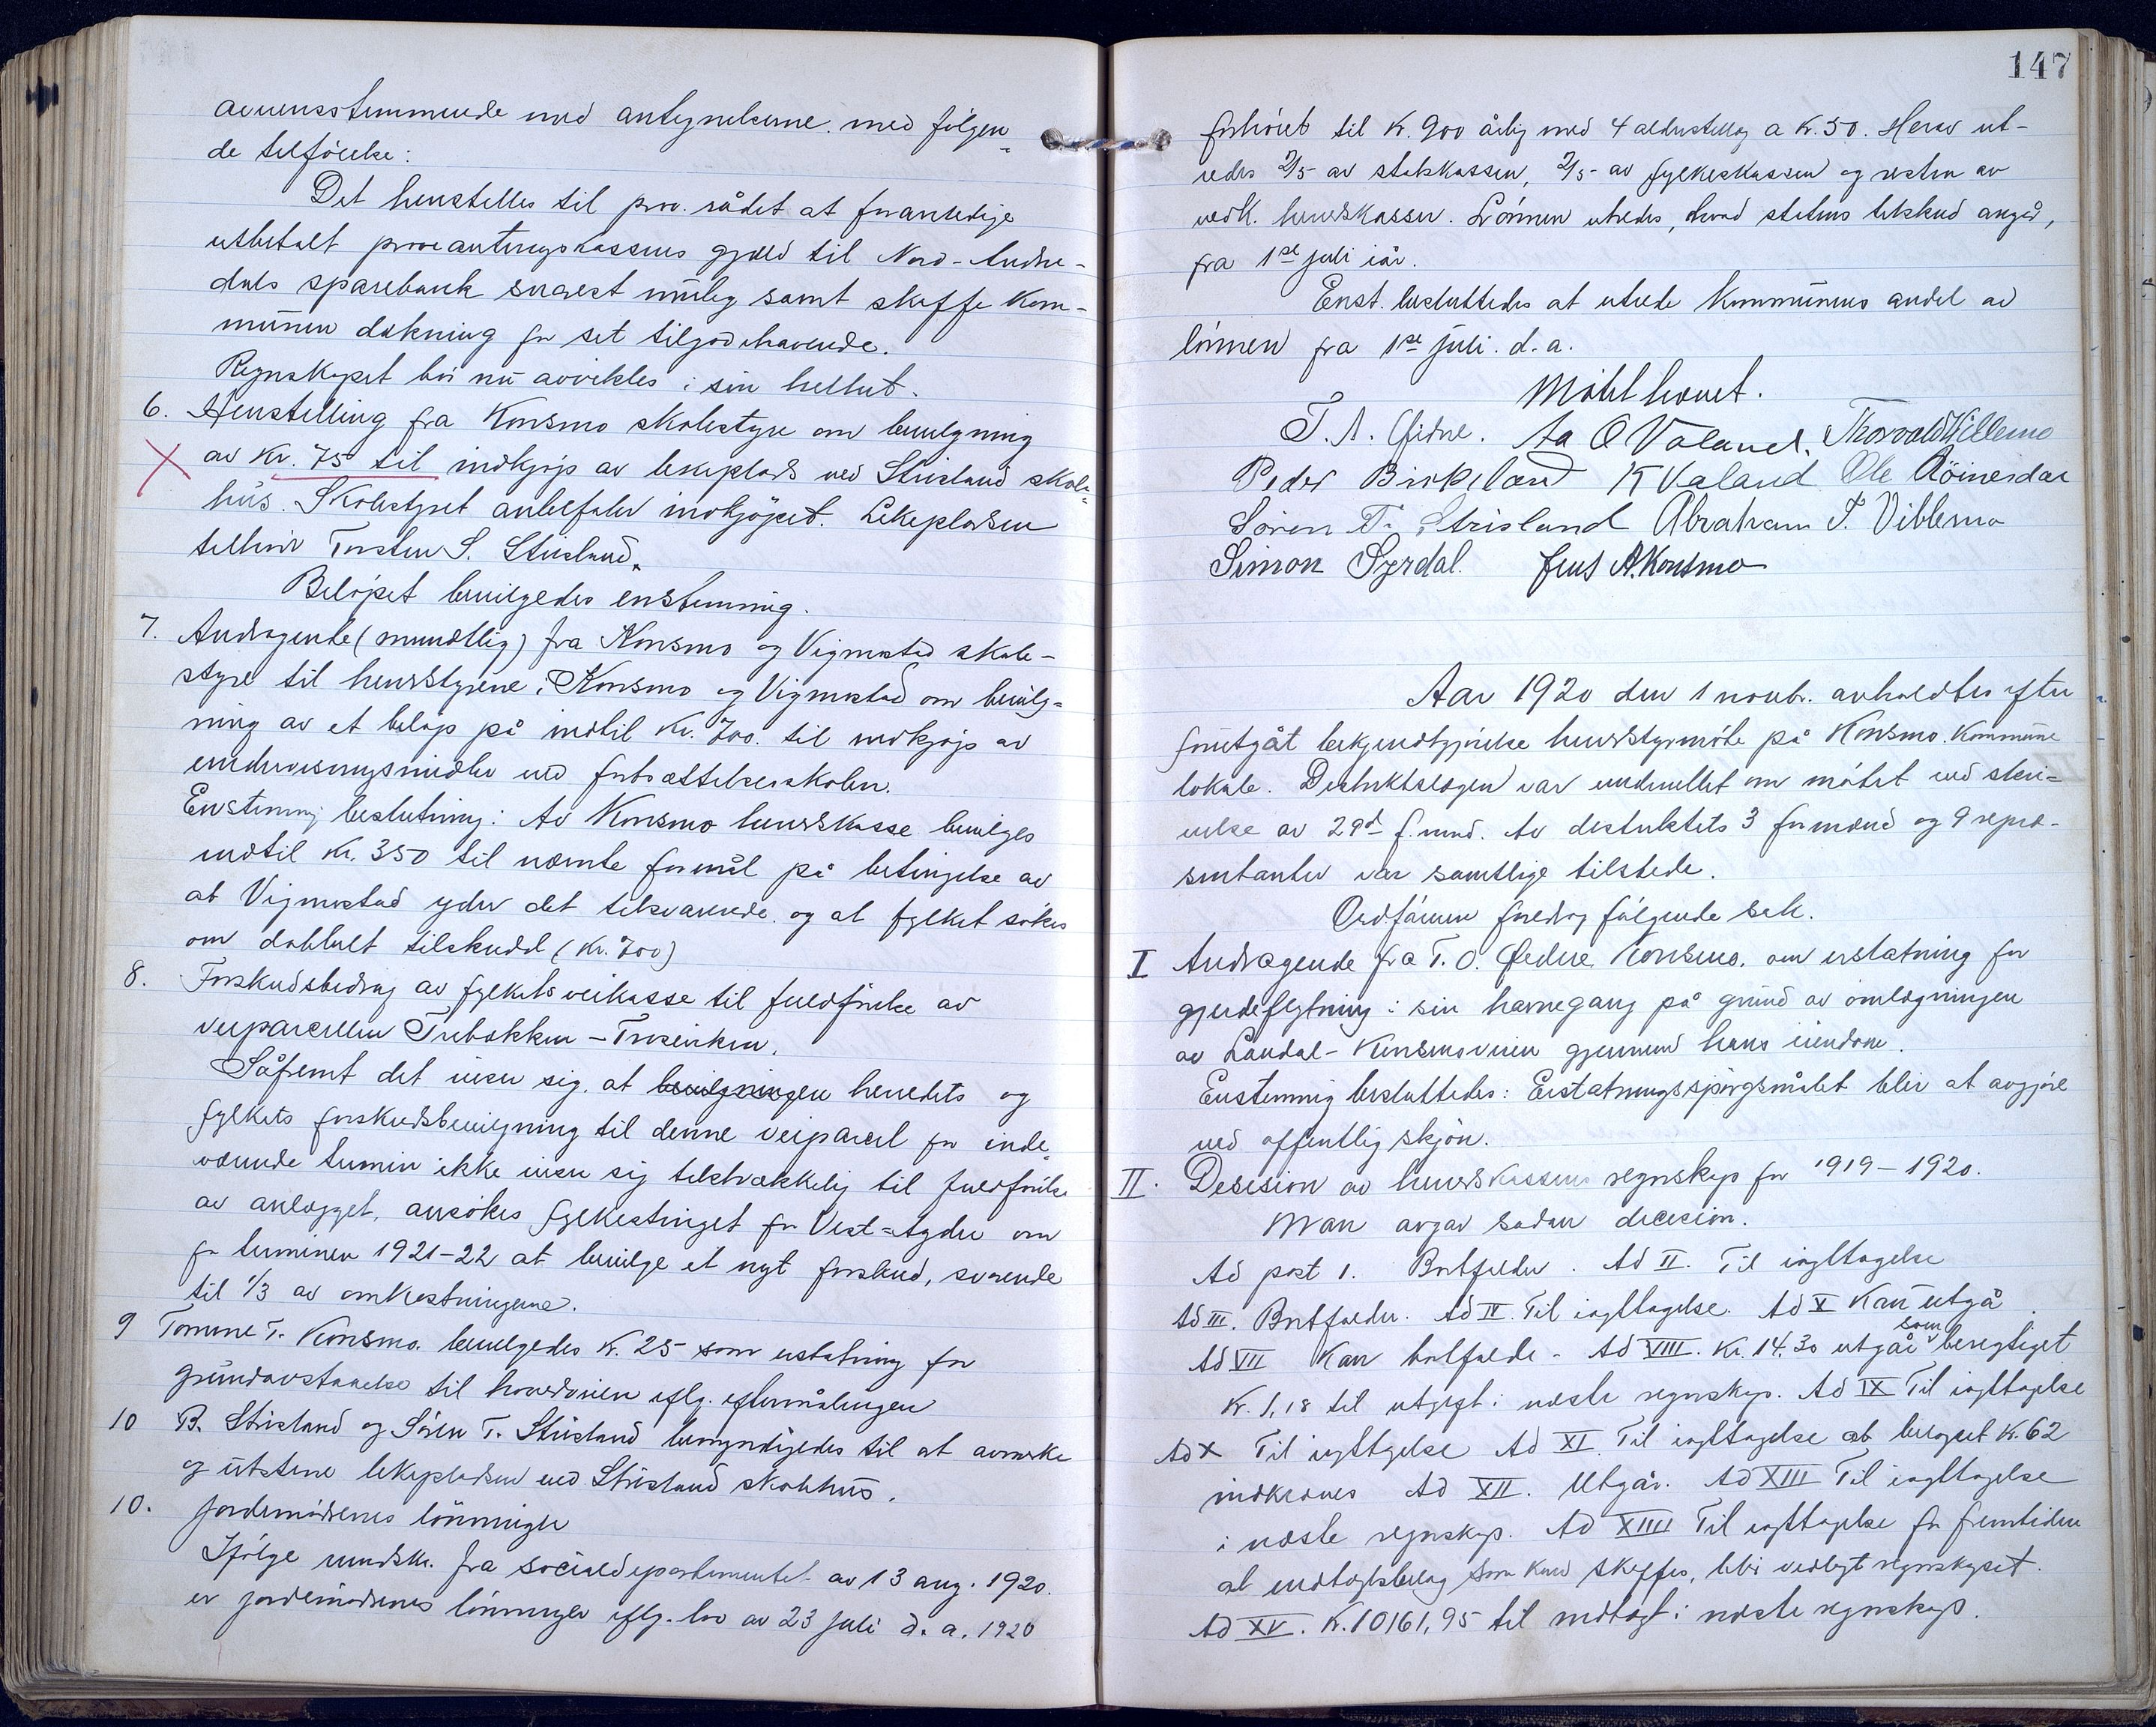 overensstemmende med antegnelserne med følgen-
de tilføielse:
Det henstilles til prov. rådet at foranledige
utbetalt provianteringskassens gjæld til Nord-Audne-
dals sparebank snarest mulig samt skaffe kom-
munen dækning for set tilgodehavende.
Regnskapet bør nu avvikles i sin helhet.
6. Henstilling fra Konsmo skolestyre om bevilgning
av kr. 75 til indkjøp av lekeplads ved Strisland skole-
hus. Skolestyret anbefaler indkjøpet. Lekepladsen
tilhører Torsten S. Strisland.
Beløpet bevilgedes enstemmig.
7. Andragende (mundtlig) fra Konsmo og Vigmostad skole-
styre til herredsstyrene i Konsmo og Vigmostad om bevilg-
ning av et beløp på indtil kr. 700. til indkjøp av
undervisningsmidler ved fortsættelsesskolen.
Enstemmig beslutning: Av Konsmo herredskasse bevilges
indtil kr. 350 til nævnte formål på betingelse av
at Vigmostad yder det tilsvarende og at fylket søkes
om dobbelt tilskudd (kr. 700)
8. Forskudsbidrag av fylkets veikasse til fuldførelse av
veiparcellen Tubakken -
Såfremt det viser sig at bevilgningen herredets og
fylkets forskudsbevilgning til denne veiparcel for inde-
værende termin ikke viser sig tilstrækkelig til fuldførelse
av anlægget, ansøkes fylkestinget for Vest-Agder om
for terminen 1921-22 at bevilge et nyt forskud, svarende
til 1/3 av omkostningerne.
9 Tomine T. Konsmo bevilgedes kr. 25 som erstatning for
grundavstaaelse til hovedveien iflg. eftermålingen
10 B. Strisland og Sören T. Strisland bemyndigedes til at avmerke
og utstene lekepladsen ved Strisland skolehus.
10. Jordemødrenes lønninger
Ifølge rundskr. fra socialdepartementet av 13 aug. 1920.
er jordemødrenes lønninger iflg. lov av 23 juli d. a. 1920
147
forhöiet til kr. 900 årlig med 4 alderstillæg a kr. 50. Herav ut-
redes 2/5 av statskassen, 2/5 av fylkeskassen og resten av
vedk. herredskasse. Lønnen utredes, hvad statens tilskud angår,
fra 1ste juli iår.
Enst. besluttedes at utrede kommunens andel av
lönnen fra 1ste juli d. a.
Møtet hevet.
T. A. Øidne. Aa O Valand. Thorvald Villemo
Peder Birkeland K Valand Ole Röinesdal
Sören T. Strisland Abraham T. Viblemo
Simon Syrdal. Jens A. Konsmo
Aar 1920 den 1 novbr. avholdtes efter
forutgåt bekjendtgjørelse herredsstyrmöte på Konsmo Kommune
lokale. Distriktslægen var underrettet om mötet ved skri-
velse av 29de f. mnd. Av distriktets 3 formænd og 9 repræ-
sentanter var samtlige tilstede.
Ordføreren foredrog følgende sak.
I Andragende fra T. O. Øidne Konsmo. om erstatning for
gjerdeflytning i sin havnegang på grund av omlægningen
av Laudal-Konsmoveien gjennem hans eiendom.
Enstemmig besluttedes: Erstatningsspörgsmålet blir at avgjøre
ved offentlig skjøn.
II. Desision av herredskassens regnskap for 1919-1920.
Man avgav sådan decision.
Ad post 1. Bortfalder. Ad II. Til iagttagelse
Ad III. Bortfalder. Ad IV. Til iagttagelse. Ad X Kan utgå.
Ad VII Kan bortfalde - Ad VIII. kr. 14.30 utgår som beregtiget
Kr. 1,18 til utgift i næste regnskap. Ad IX Til iagttagelse
Ad X Til iagttagelse Ad XI. Til iagttagelse at beløpet kr. 62
indkræves Ad XII. Utgår. Ad XIII Til iagttagelse
i næste regnskap. Ad XIIII Til iagttagelse for fremtiden
at indtægtsbilag som kan skaffes, blir vedlagt regnskapet.
Ad XV. Kr. 10161,95 til indtægt i næste regnskap.